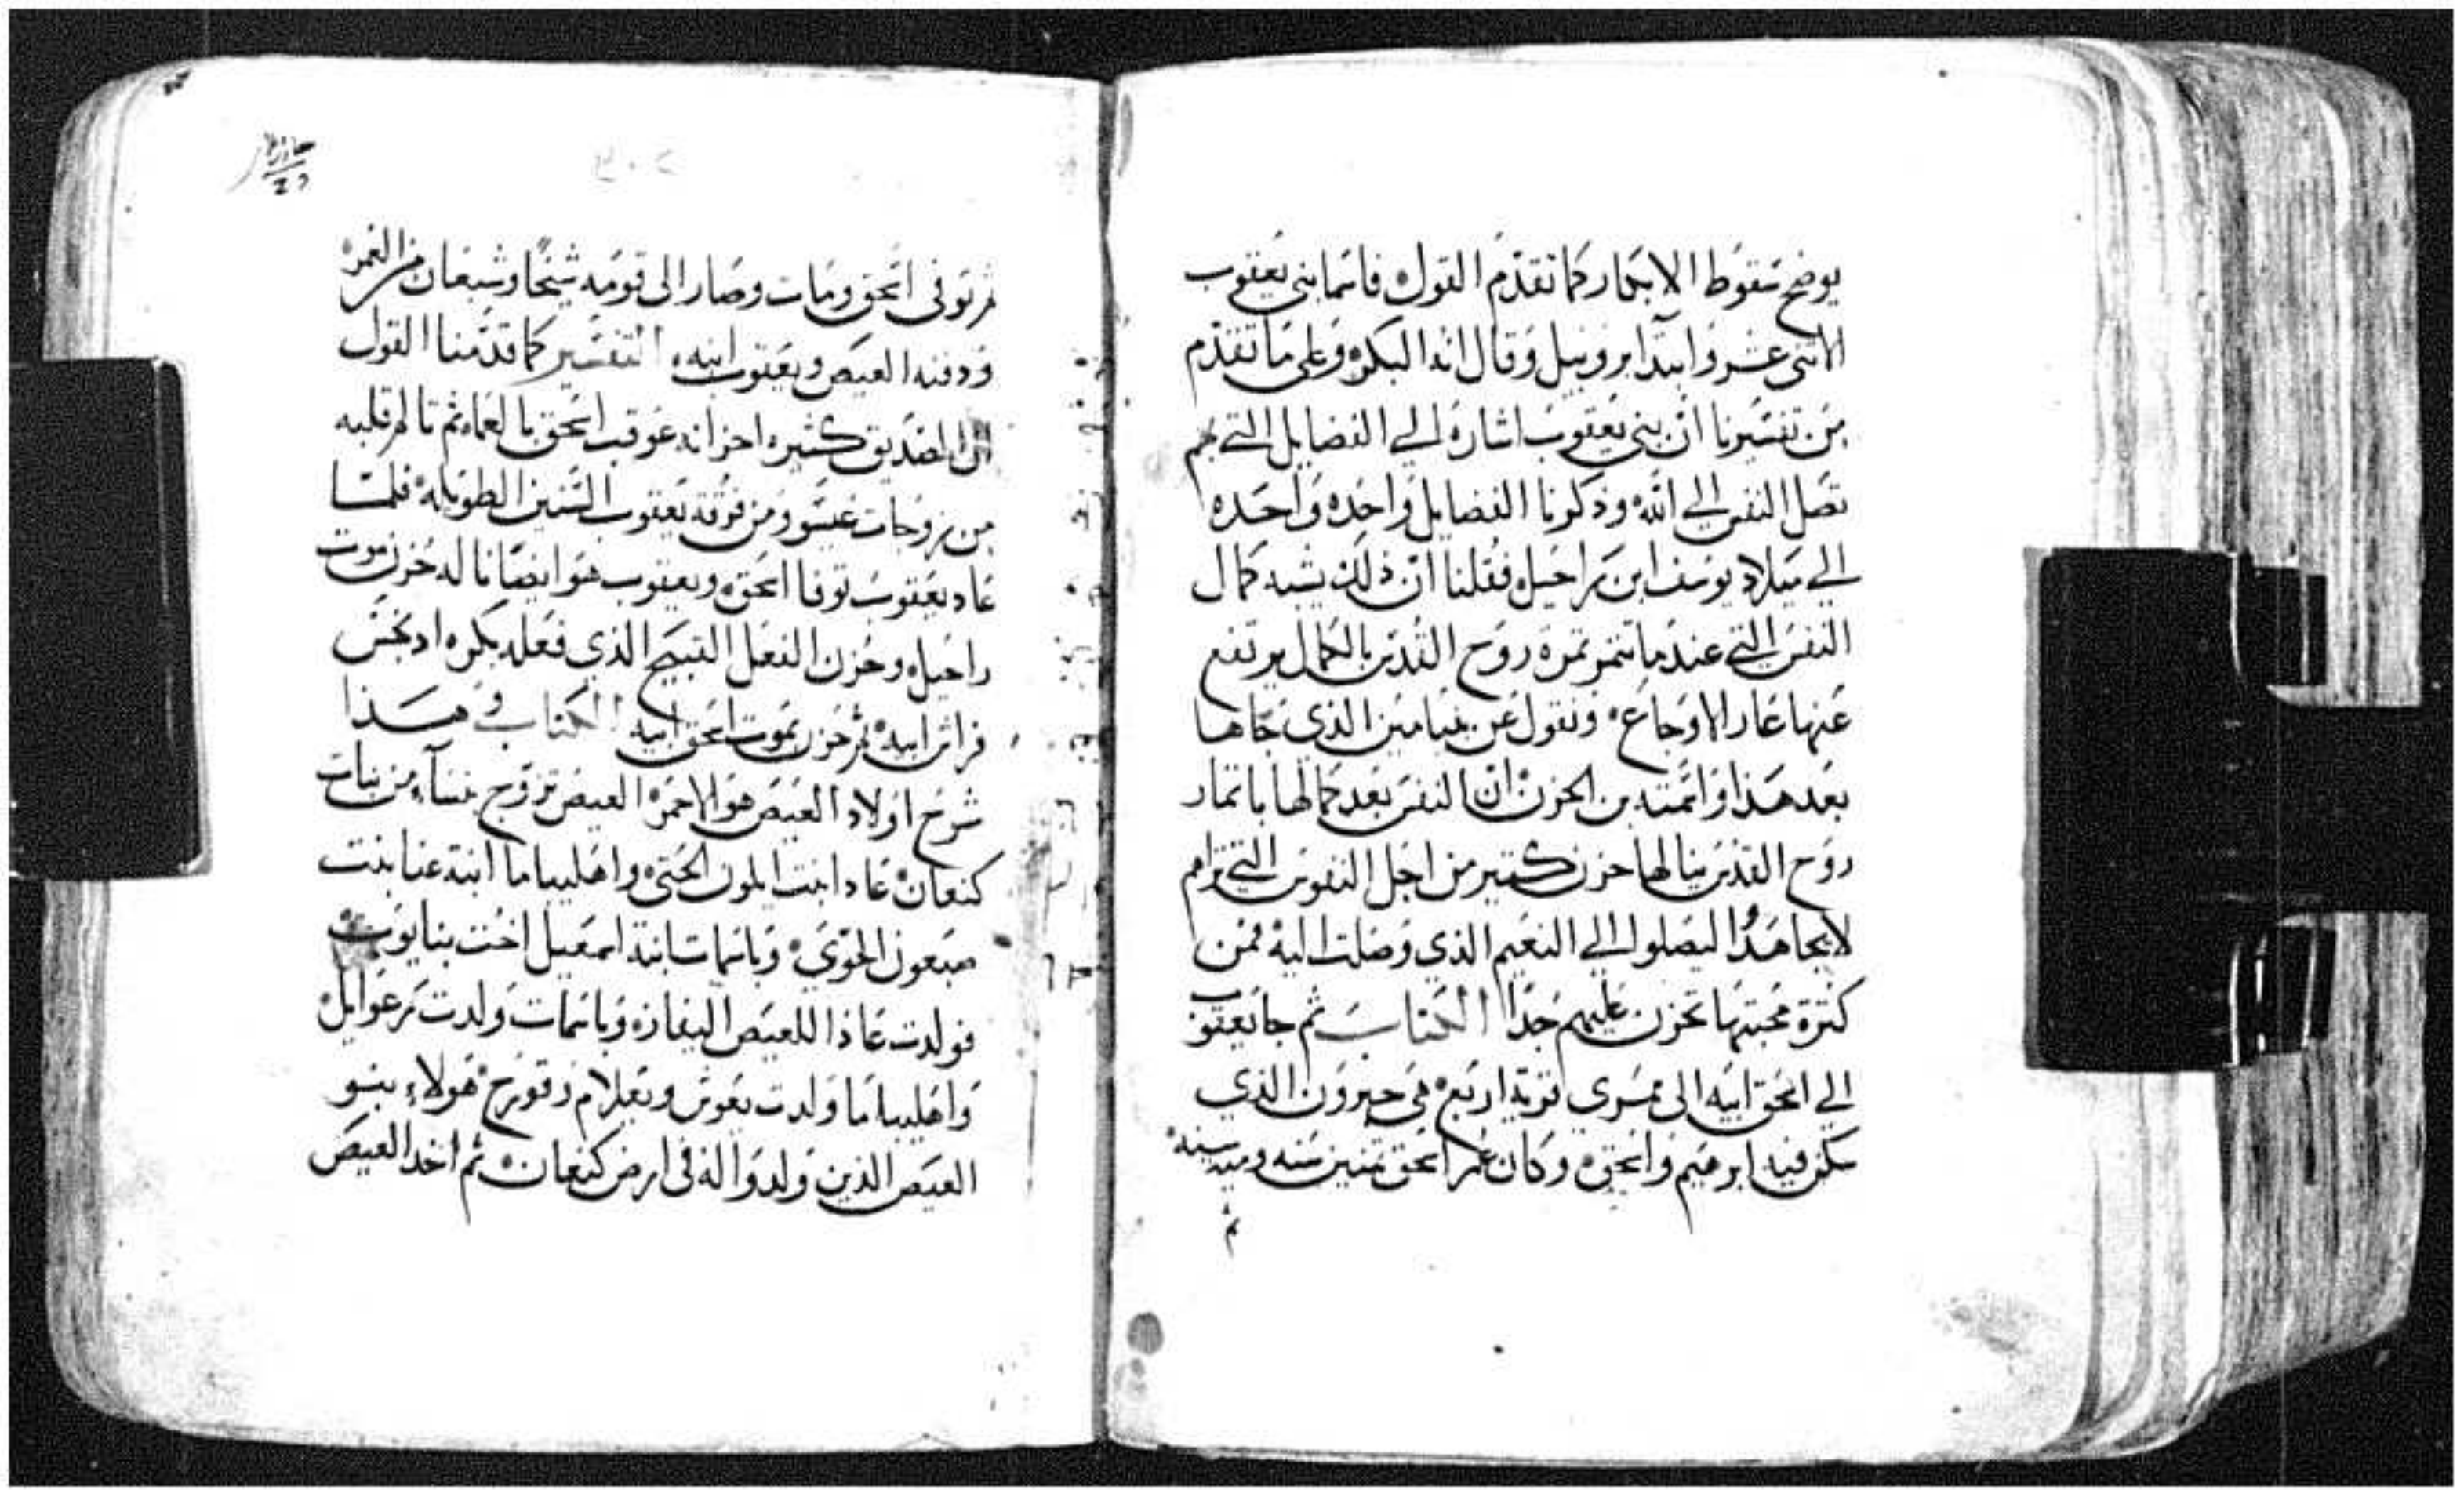 يوضح سقوط الابكار كما تقدم القول فاسما بني يعقوب
الاثنى عشر وابتدا بروبيل وقال انه البكر وعلى ما تقدم
من تفسيرنا ان بني يعقوب اشاره الي الفضايل التي بهم
تصل النفس الي الله وذكرنا الفضايل واحده واحده
الي ميلاد يوسف ابن راحيل فقلنا ان ذلك يشبه كمال
النفس التي عندما تتمر تمرة روح القدس بالكمال يرتفع
عنها عار الاوجاع ونقول عن بنيامين الذي جاها
بعد هذا واسمته بن الحزن ان النفس بعد كمالها باتمار
روح القدس ينالها حزن كتير من اجل النفوس التي تراهم
لا يجاهدوا ليصلوا الي النعيم الذي وصلت اليه فمن
كترة محبتها تحزن عليهم جدا الكتاب ثم جا يعقوب
الي اسحق ابيه الى ممري قرية اربع هي حبرون الذي
سكن فيه ابرهيم واسحق وكان عمر اسحق تمنين سنه وميه سنه
ثم
٢٠٣
ثم توفى اسحق ومات وصار الى قومه شيخا وشبعان من العمر
ودفنه العيص ويعقوب ابنيه التفسير كما قدمنا القول
ان الصديق كثيره احزانه عوقب اسحق بالعماء ثم تالم قلبه
من زوجات عيسو ومن فرقة يعقوب السنين الطويله فلما
عاد يعقوب توفا اسحق ويعقوب هو ايضا ناله حزن موت
راحيل وحزن الفعل القبيح الذي فعله بكره اد نجس
فراش ابيه ثم حزن بموت اسحق ابيه الكتاب و هذا
شرح اولاد العيص هو الاحمر العيص تزوج نساء من بنات
كنعان عادا بنت ايلون الحتي واهليباما ابنة عنا بنت
صبعون الحوي وباسمات ابنة اسمعيل اخت بنايوت
فولدت عاذا للعيص اليفاز وباسمات ولدت رعوايل
واهليباما ولدت يعوش ويعلام وقورح هولاء بنو
العيص الذين ولدوا له في ارض كنعان ثم اخد العيص